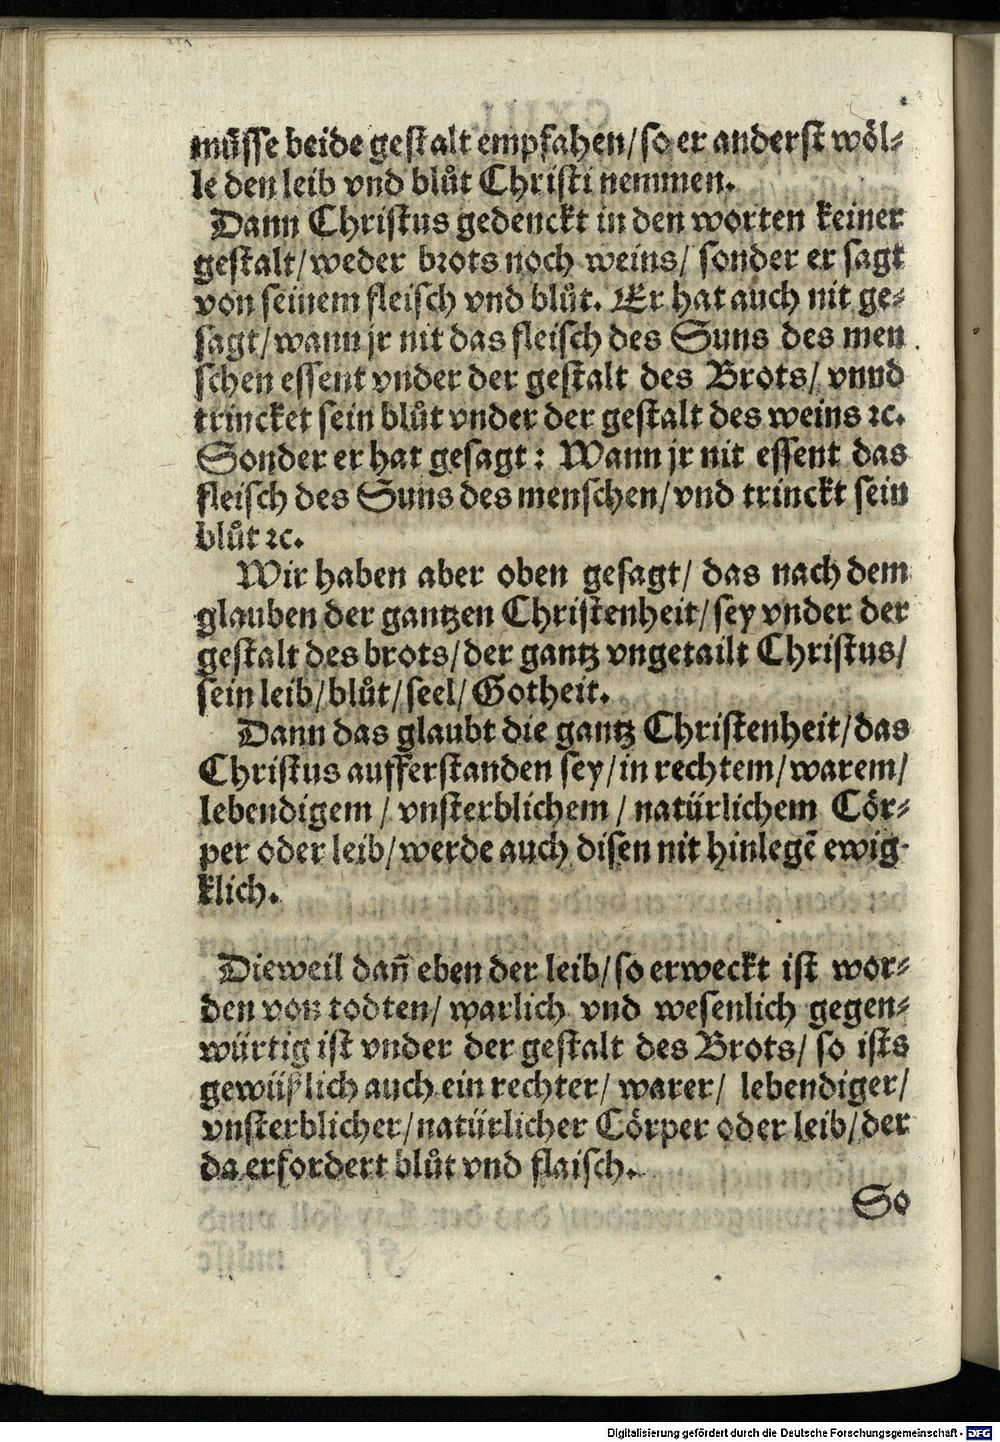 müsse beide gestalt empfahen/so er anderst wöl⸗
le den leib vnd blůt Christi nemmen.
Dann Christus gedenckt in den worten keiner
gestalt/weder brots noch weins/ sonder er sagt
von seinem fleisch vnd blůt. Er hat auch nit ge⸗
sagt/wann jr nit das fleisch des Suns des men
schen essent vnder der gestalt des Brots/ vnnd
trincket sein blůt vnder der gestalt des weins ꝛc.
Sonder er hat gesagt: Wann jr nit essent das
fleisch des Suns des menschen/vnd trinckt sein
blůt ꝛc.
Wir haben aber oben gesagt/ das nach dem
glauben der gantzen Christenheit/sey vnder der
gestalt des brots/der gantz vngetailt Christus/
sein leib/blůt/seel/Gotheit.
Dann das glaubt die gantz Christenheit/das
Christus aufferstanden sey/in rechtem/warem/
lebendigem/ vnsterblichem/ natürlichem Cör⸗
per oder leib/werde auch disen nit hinlegē ewig
klich.
Dieweil dañ eben der leib/so erweckt ist wor⸗
den von todten/ warlich vnd wesenlich gegen⸗
würtig ist vnder der gestalt des Brots/ so ists
gewüßlich auch ein rechter/ warer/ lebendiger/
vnsterblicher/natürlicher Cörper oder leib/der
da erfordert blůt vnd flaisch.
So
Digitalisierung gefördert durch die Deutsche Forschungsgemeinschaft - DFG